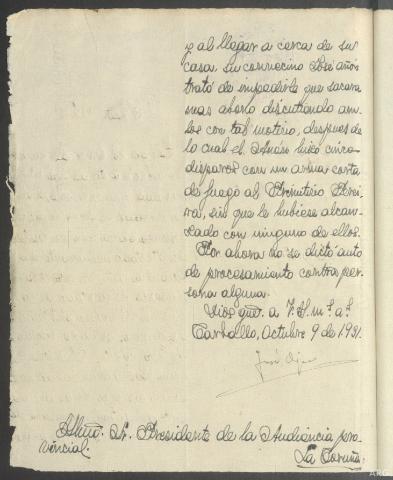 y al llegar a cerca de su
casa, su convecino José Añón
trató de impedirle que sacara
mas abono discutiendo am-
bos con tal motivo, despues de
lo cual el Añón hizo cinco
disparos con un arma corta
de fuego al Primitivo Perei-
ra, sin que le hubiese alcan-
zado con ninguno de ellos.
Por ahora no se dictó auto
de procesamiento contra per-
sona alguna.
Dios gue. a V.I. m.s a.s
Carballo, Octubre 9 de 1931.
José
Iltmo. Sr. Presidente de la Audiencia pro-
vincial.
La Coruña.
ARG